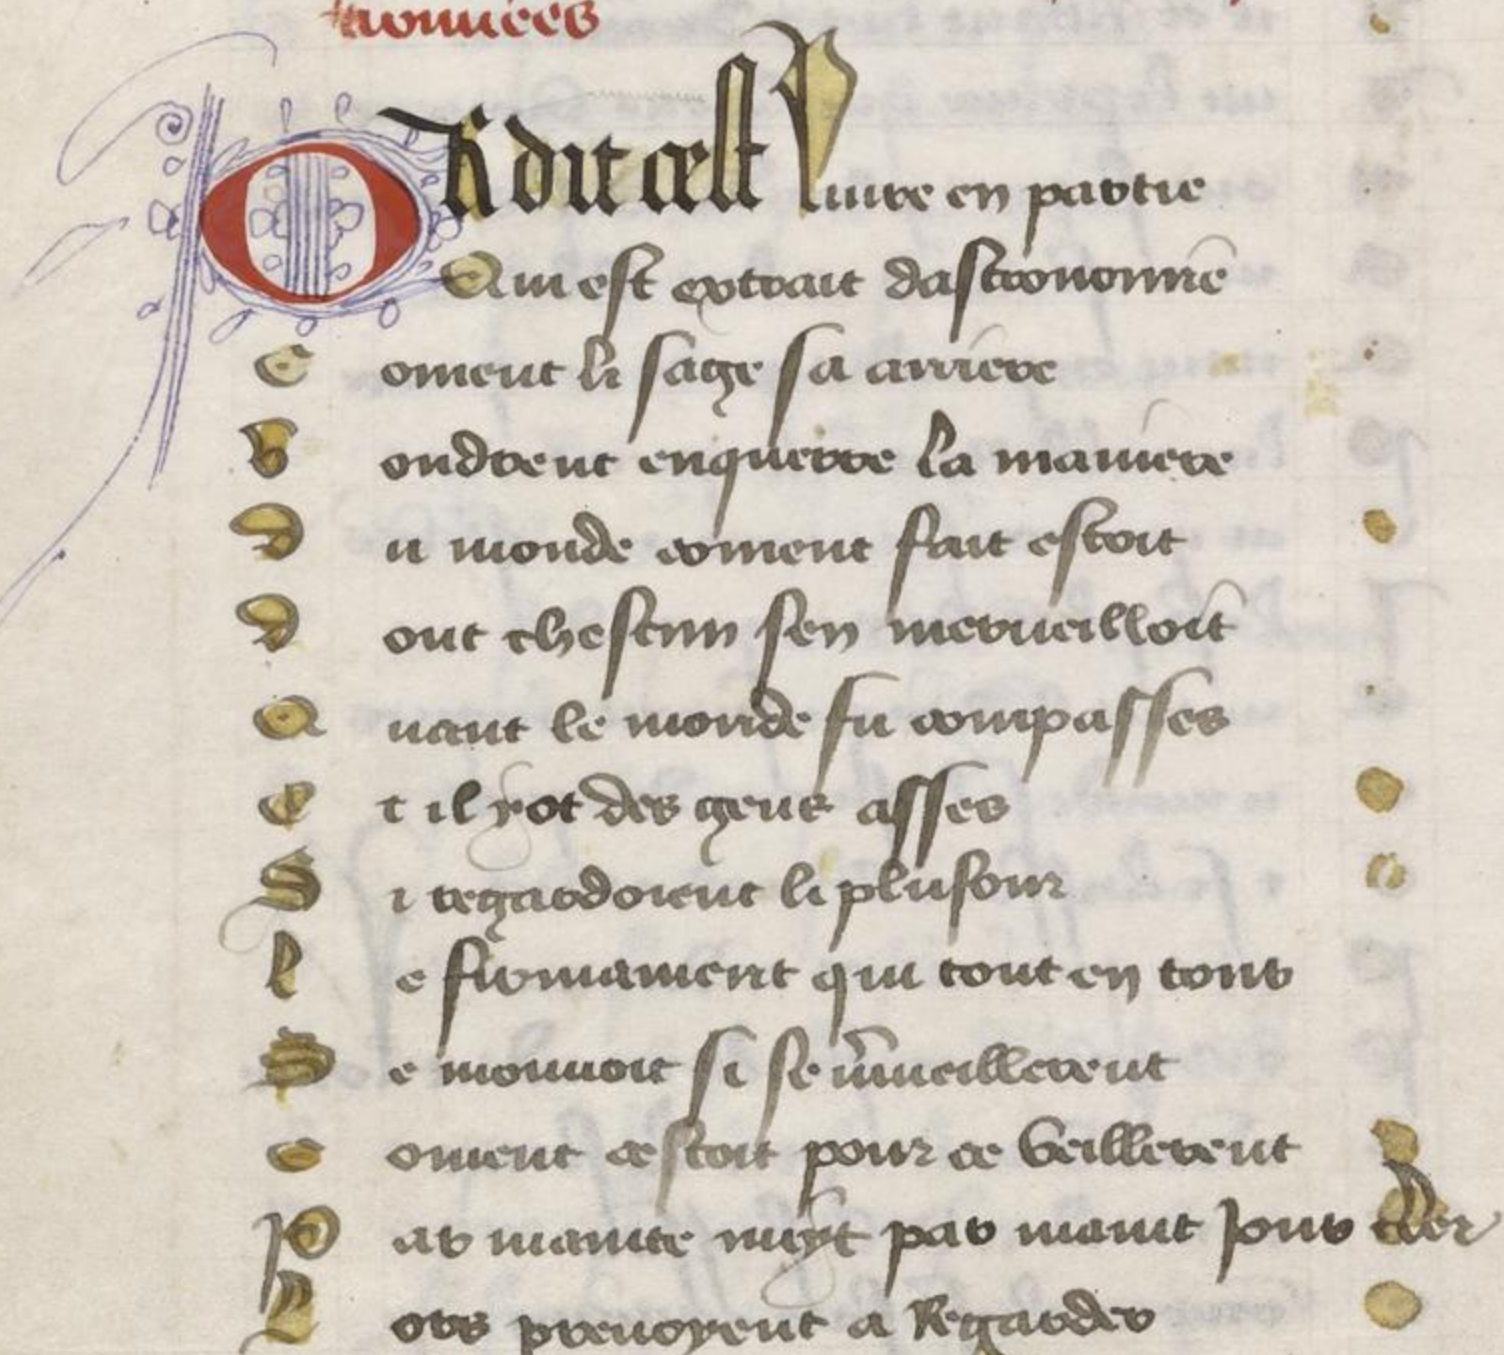 trouuees
OR dit cest liure en partie
Qui est extrait dastronomie
Coment li sage sa arriere
Vondrent enquerre la maniere
Du monde coment fait estoit
Dont chescun sen merueilloit
Auant le monde fu compasses
Et il y ot des gens asses
Si regardoient li plusour
Le firmament qui tout en tour
Se mouuoit si se mueillerent
Coment cestoit pour ce veillerent
Par mainte nuyt par maint Jour cler
Lors prenoyent a Regarder